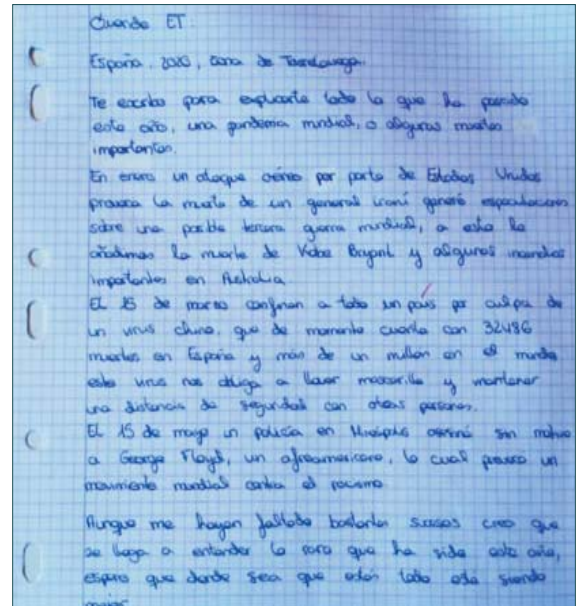 Querido ET:
España, 2020, zona de Torrelavega.
Te escribo para explicarte todo lo que ha pasado
este año, una pandemia mundial, o algunas muertes
importantes.
En enero un ataque aéreo por parte de Estados Unidos
provoca la muerte de un general iraní generó especulaciones
sobre una posible tercera guerra mundial, a esto le
añadimos la muerte de Kobe Bryant y algunos incendios
importantes en Australia.
El 15 de marzo confinan a todo un país por culpa de
un virus chino, que de momento cuenta con 32486
muertes en España y más de un millon en el mundo
este virus nos obliga a llevar mascarilla y mantener
una distancia de seguridad con otras personas.
El 15 de mayo un policía en asesinó sin motivo
a George Floyd, un afroamericano, lo cual provocó un
movimiento mundial contra el racismo.
Aunque me hayan faltado bastantes sucesos creo que
se llega a entender lo raro que ha sido este año,
espero que donde sea que estés todo esté siendo
mejor